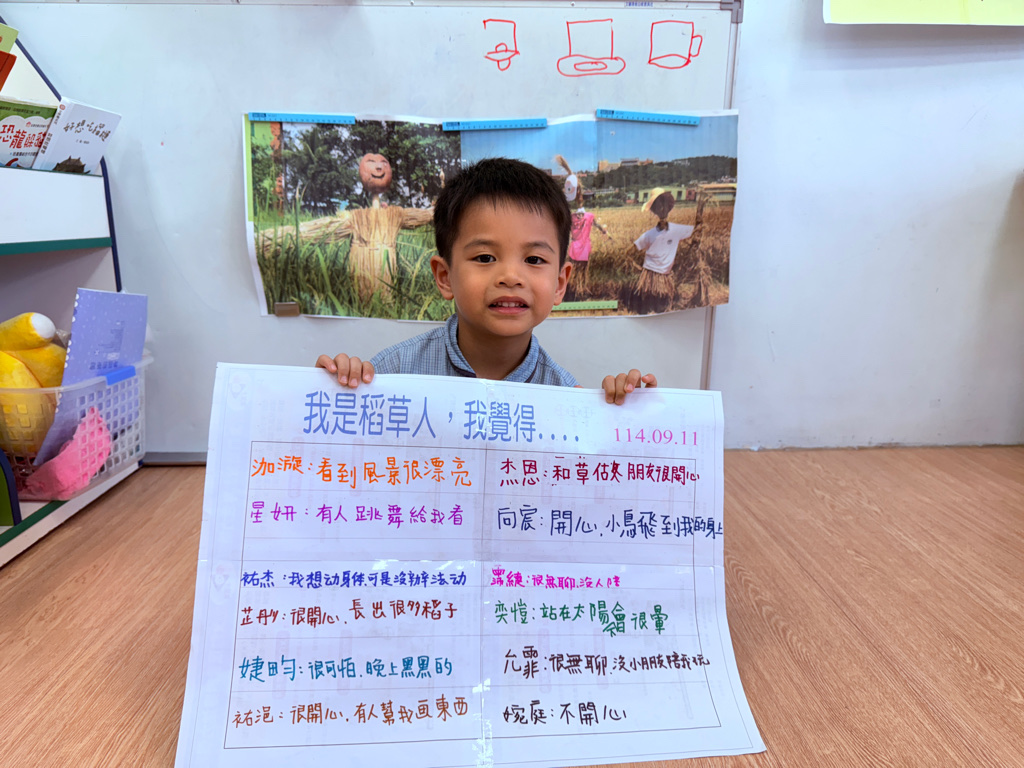 恐龍
好想吃榴槤
我是稻草人，我覺得....
114.09.11
泇漩：看到風景很漂亮
杰恩：和草估ㄉ朋友很開心
星妍：有人跳舞給我看
向宸：開心，小鳥飛到我的身上
祐杰：我想动身体.可是沒辦法动
很無聊.沒人陪
芷彤：很開心、長出很多稻子
奕愷：站在太陽會很暈
婕昀：很可怕.晚上黑黑的
允霏：很無聊.沒小朋友陪我玩
祐浥：很開心.有人幫我画東西
婉庭：不開心